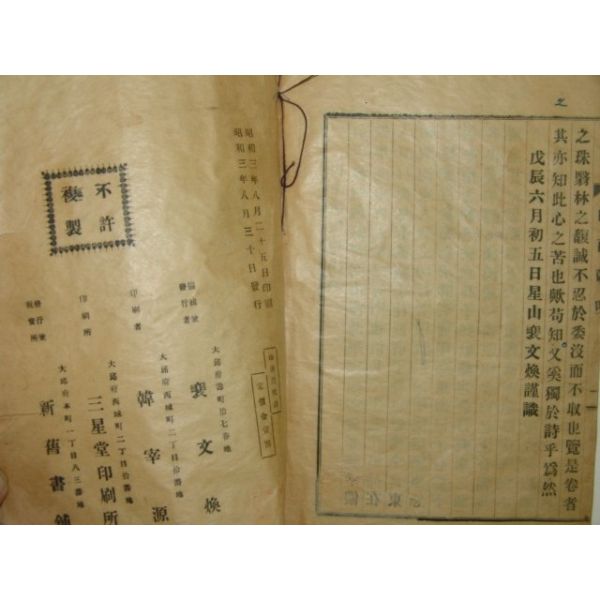 之珠翳林之馥誠不忍於委沒而不取也覽是卷者
其亦知此心之苦也歟苟知又奚獨於詩乎爲然
戊辰六月初五日星山裵文煥謹識
昭和三年八月二十五日印刷
昭和三年八月三十日發行
不許
複製
發行者
裵文煥
印刷者
大邱府西城町二丁目拾番地
韓宰源
印刷所
大邱府西城町二丁目拾番地
三星堂印刷所
大邱府本町一丁目八三番地
新舊書鋪